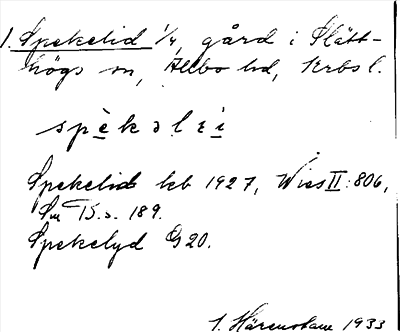 1. Spekelid 1/4, gård i Slätt-
högs sn, Allbo hd, Krbs l.
spèkəlɛi
Spekelid kb 1927, Wies II: 806,
Sm TS. s. 189.
Spekelyd G 20.
I. Härenstam 1933